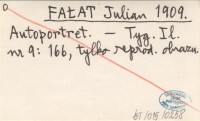 FAŁAT Julian 1909.
Autoportret. — Tyg. Il.
nr 9: 166, tylko reprod. obrazu.